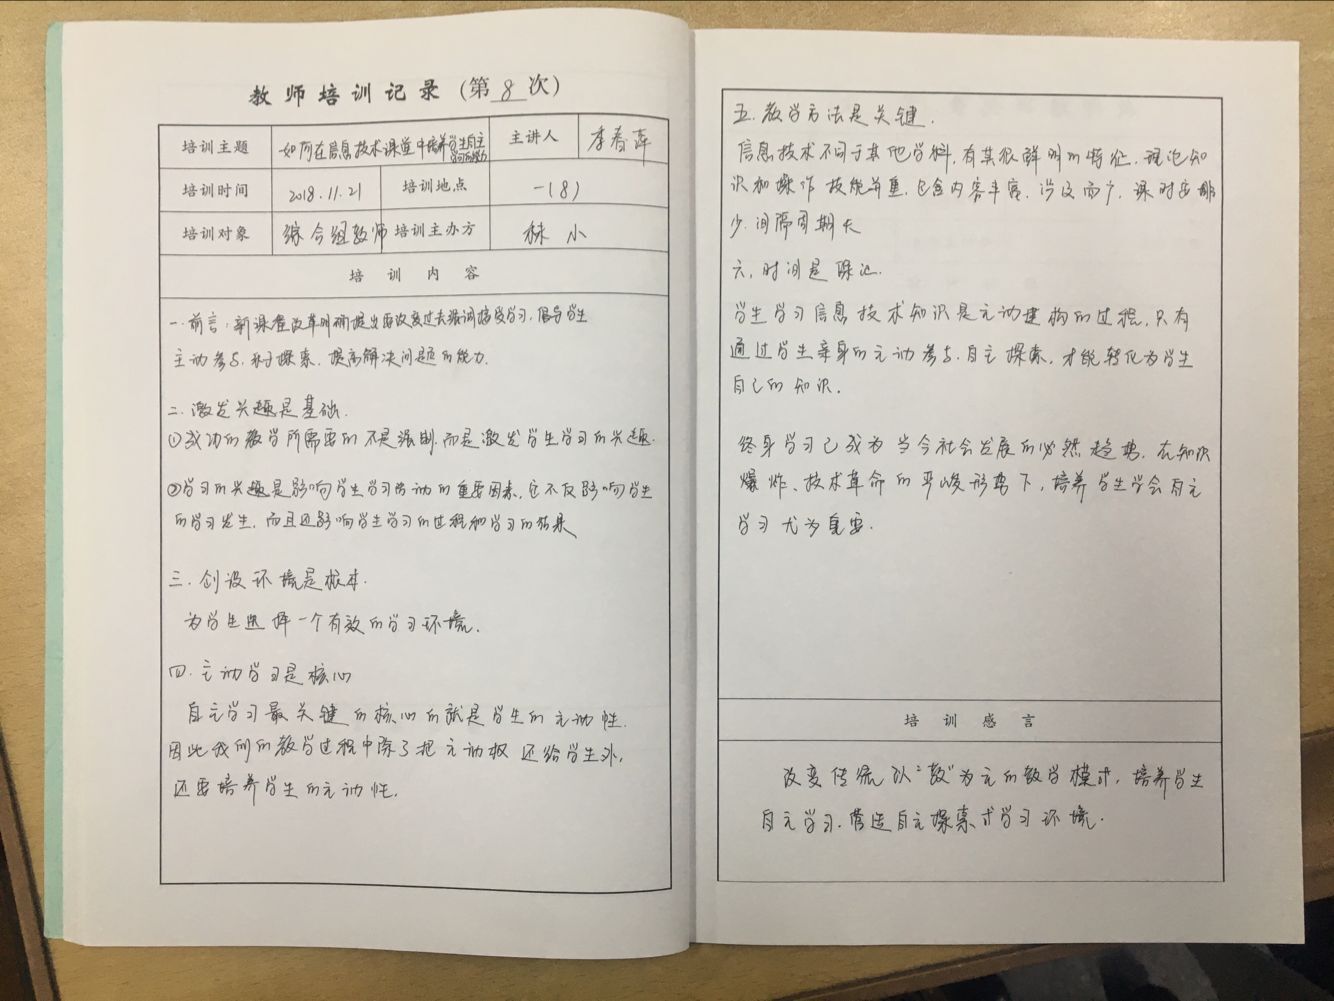 教师培训记录（第8次）
培训主题 如何在信息技术课堂中培养学生自主学习的能力 主讲人 李春萍
培训时间 2018.11.21 培训地点 一(8)
培训对象 综合组教师 培训主办方 秣小
培训内容
一.前言：新课程改革明确提出要改变过去强调接受学习，倡导学生
主动参与、乐于探索、提高解决问题的能力.
二.激发兴趣是基础.
①成功的教学所需要的不是强制.而是激发学生学习的兴趣.
②学习的兴趣是影响学生学习活动的重要因素.它不仅影响学生
的学习发生.而且还影响学生学习的过程和学习的结果
三.创设环境是根本.
为学生选择一个有效的学习环境.
四.主动学习是核心
自主学习最关键的核心的就是学生的主动性.
因此我们的教学过程中除了把主动权还给学生外,
还要培养学生的主动性.
五.教学方法是关键.
信息技术不同于其他学科,有其很鲜明的特征.理论知
识和操作技能并重.包含内容丰富.涉及面广.课时安排
少.间隔周期长
六.时间是保证.
学生学习信息技术知识是主动建构的过程.只有
通过学生亲身的主动参与.自主探索.才能转化为学生
自己的知识.
终身学习已成为当今社会发展的必然趋势.在知识
爆炸、技术革命的严峻形势下,培养学生学会自主
学习尤为重要.
培训感言
改变传统以“教”为主的教学模式,培养学生
自主学习.营造自主探索式学习环境.